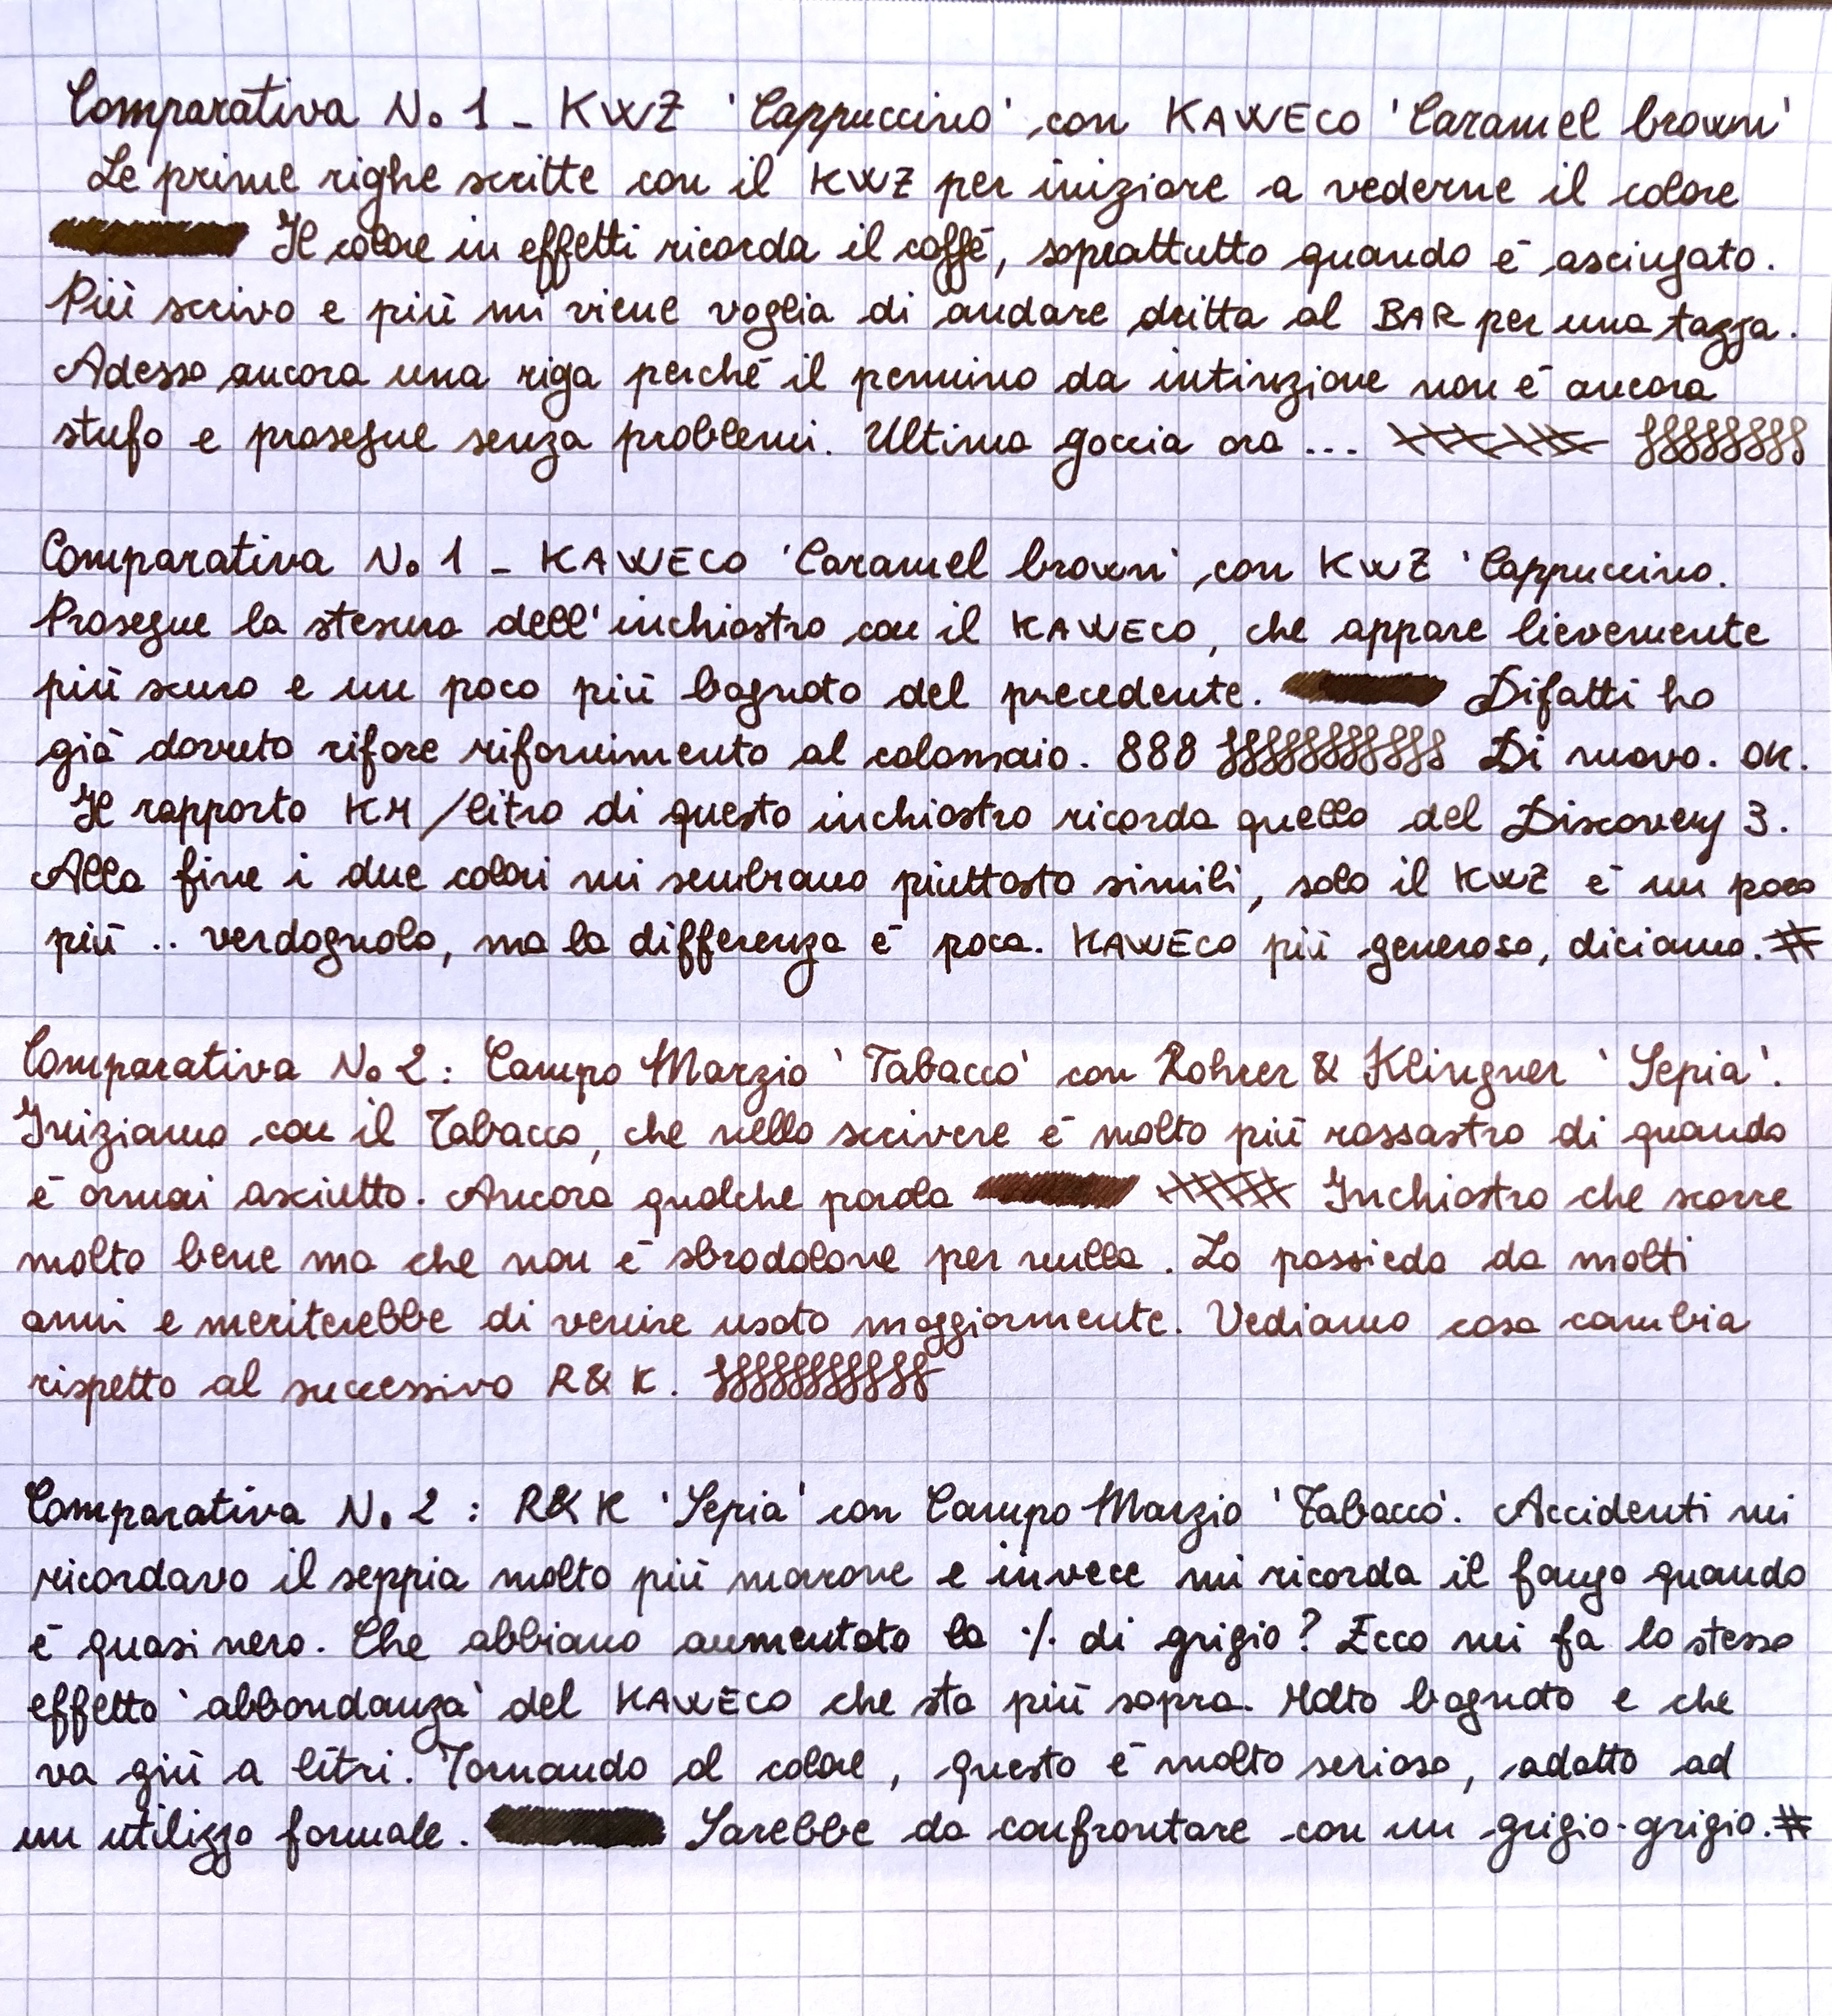 Comparativa No 1 - KWZ 'Cappuccino' con KAWECO 'Caramel brown'
Le prime righe scritte con il KWZ per iniziare a vederne il colore
Il colore in effetti ricorda il caffè, soprattutto quando è asciugato.
Più scrivo e più mi viene voglia di andare dritta al BAR per una tazza.
Adesso ancora una riga perché il pennino da intinzione non è ancora
stufo e prosegue senza problemi. Ultima goccia ora ...
Comparativa No 1 - KAWECO 'Caramel brown' con KWZ 'Cappuccino.
Prosegue la stesura dell'inchiostro con il KAWECO, che appare lievemente
più scuro e un poco più bagnato del precedente. Difatti ho
già dovuto rifare rifornimento al calamaio. 888 Di nuovo. OK.
Il rapporto KM/litro di questo inchiostro ricorda quello del Discovery 3.
Alla fine i due colori mi sembrano piuttosto simili, solo il KWZ è un poco
più .. verdognolo, ma la differenza è poca. KAWECO più generoso, diciamo. #
Comparativa No 2 : Campo Marzio 'Tabacco' con Rohrer & Klingner 'Sepia'.
Iniziamo con il Tabacco, che nello scrivere è molto più rossastro di quando
è ormai asciutto. Ancora qualche parola Inchiostro che scorre
molto bene ma che non è sbrodolone per nulla. Lo possiedo da molti
anni e meriterebbe di venire usato maggiormente. Vediamo cosa cambia
rispetto al successivo R&K.
Comparativa No 2 : R&K 'Sepia' con Campo Marzio 'Tabacco'. Accidenti mi
ricordavo il seppia molto più marrone e invece mi ricorda il fango quando
è quasi nero. Che abbiano aumentato la % di grigio? Ecco mi fa lo stesso
effetto 'abbondanza' del KAWECO che sta più sopra. Molto bagnato e che
va giù a litri. Tornando al colore, questo è molto serioso, adatto ad
un utilizzo formale. Sarebbe da confrontare con un grigio-grigio. #